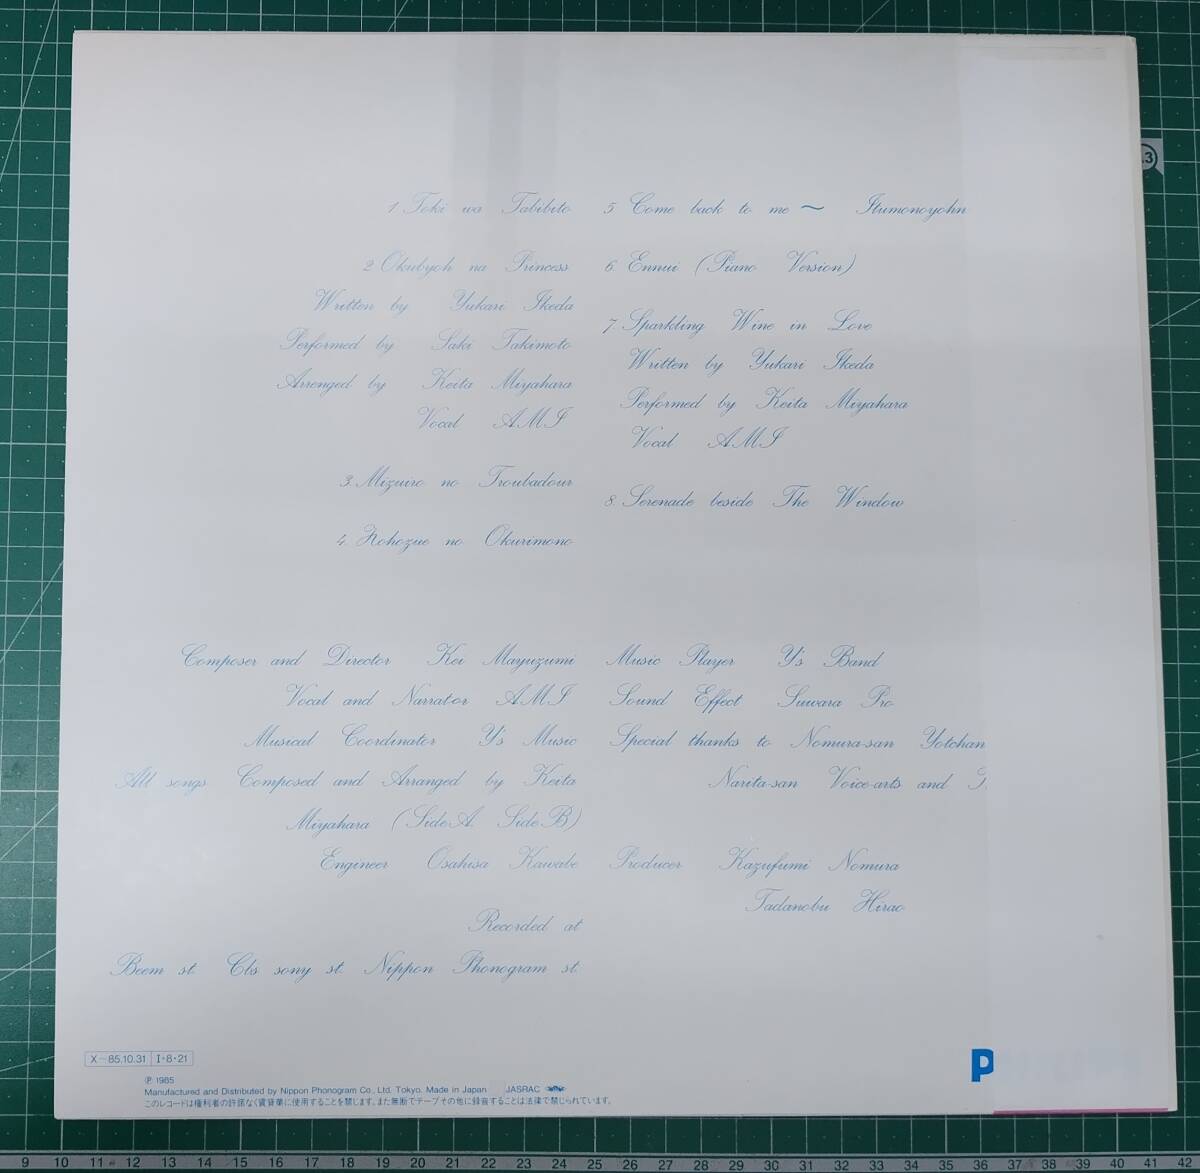 1. Toki wa Tabibito
2. Okubyoh na Princess
Written by Yukari Ikeda
Performed by Saki Takimoto
Arranged by Keita Miyahara
Vocal AMI
3. Mizuiro no Troubadour
4. Hohozue no Okurimono
5 Come back to me ~ Itumonoyohn
6. Ennui (Piano Version)
7. Sparkling Wine in Love
Written by Yukari Ikeda
Performed by Keita Miyahara
Vocal AMI
8. Serenade beside The Window
Composer and Director Kei Mayuzumi
Vocal and Narrator AMI
Musical Coordinator Y's Music
All songs Composed and Arranged by Keita
Miyahara (Side.A. Side.B)
Engineer Osahisa Kawabe
Recorded at
Beem st. Cbs sony st. Nippon Phonogram st.
Music Player Y's Band
Sound Effect Suwara Pro
Special thanks to Nomura-san Yotchan
Narita-san Voice-arts and
Producer Kazufumi Nomura
Tadanobu Hirao
X-85.10.31 I・8・21
Ⓟ 1985
Manufactured and Distributed by Nippon Phonogram Co., Ltd. Tokyo. Made in Japan JASRAC
このレコードは権利者の許諾なく賃貸業に使用することを禁じます。また無断でテープその他に録音することは法律で禁じられています。
P
.3
9 10 11 12 13 14 15 16 17 18 19 20 21 22 23 24 25 26 27 28 29 30 31 32 33 34 35 36 37 38 39 40 41 42